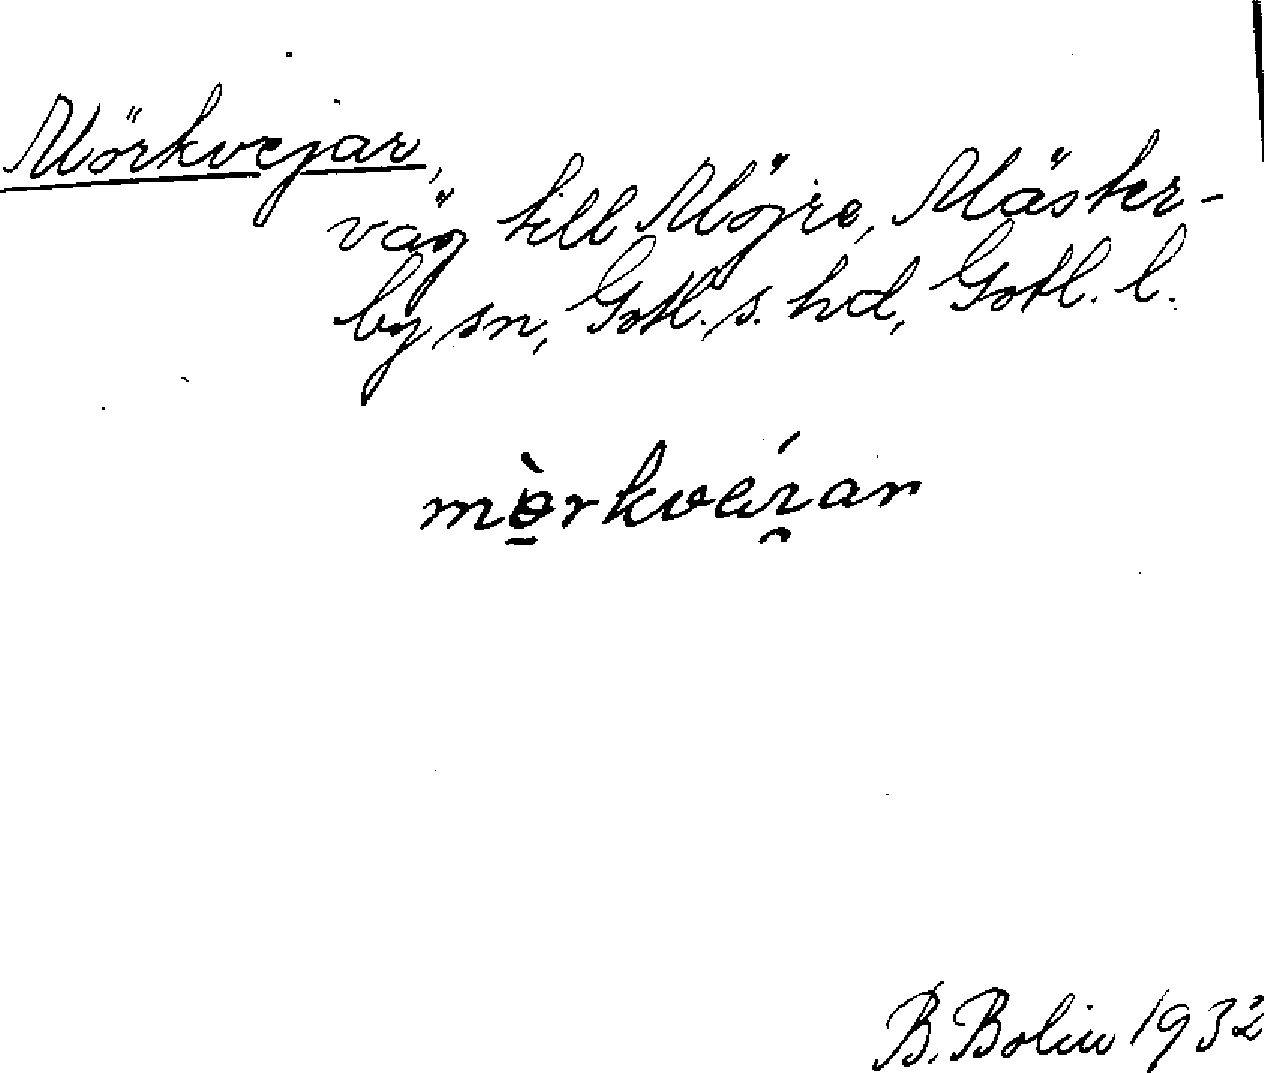 Mörkvejar,
väg till Möjre, Mäster-
by sn, Gotl. s. hd, Gotl. l.
B. Bolin 1932